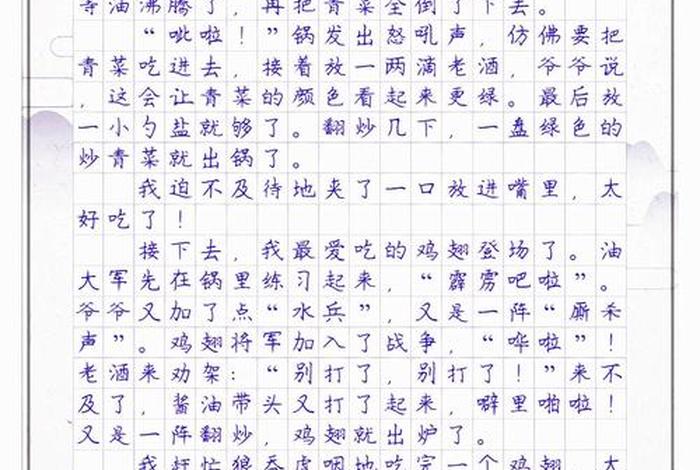 等油沸腾了，再把青菜全倒了下去。
“呲啦！”锅发出怒吼声，仿佛要把
青菜吃进去，接着放一两滴老酒，爷爷说
，这会让青菜的颜色看起来更绿。最后放
一小勺盐就够了。翻炒几下，一盘绿色的
炒青菜就出锅了。
我迫不及待地夹了一口放进嘴里，太
好吃了！
接下去，我最爱吃的鸡翅登场了。油
大军先在锅里练习起来，“霹雳吧啦”。
爷爷又加了点“水兵”，又是一阵“厮杀
声”。鸡翅将军加入了战争，“哗啦”！
老酒来劝架：“别打了，别打了！”来不
及了，酱油带头又打了起来，噼里啪啦！
又是一阵翻炒，鸡翅就出炉了。
我赶忙狼吞虎咽地吃完一个鸡翅，大